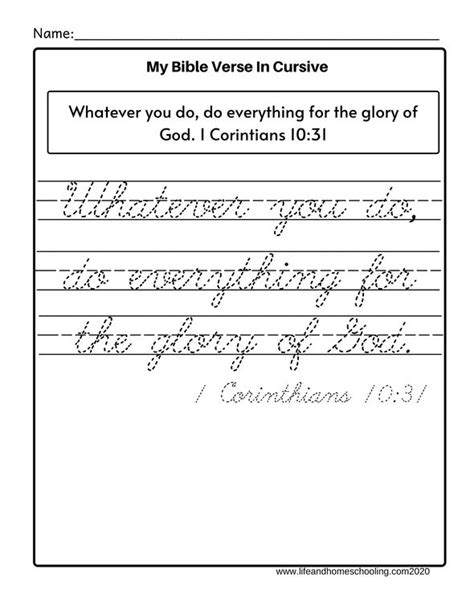 Name:
My Bible Verse In Cursive
Whatever you do, do everything for the glory of
God. 1 Corintians 10:31
Whatever you do,
do everything for
the glory of God.
1 Corinthians 10:31
www.lifeandhomeschooling.com2020